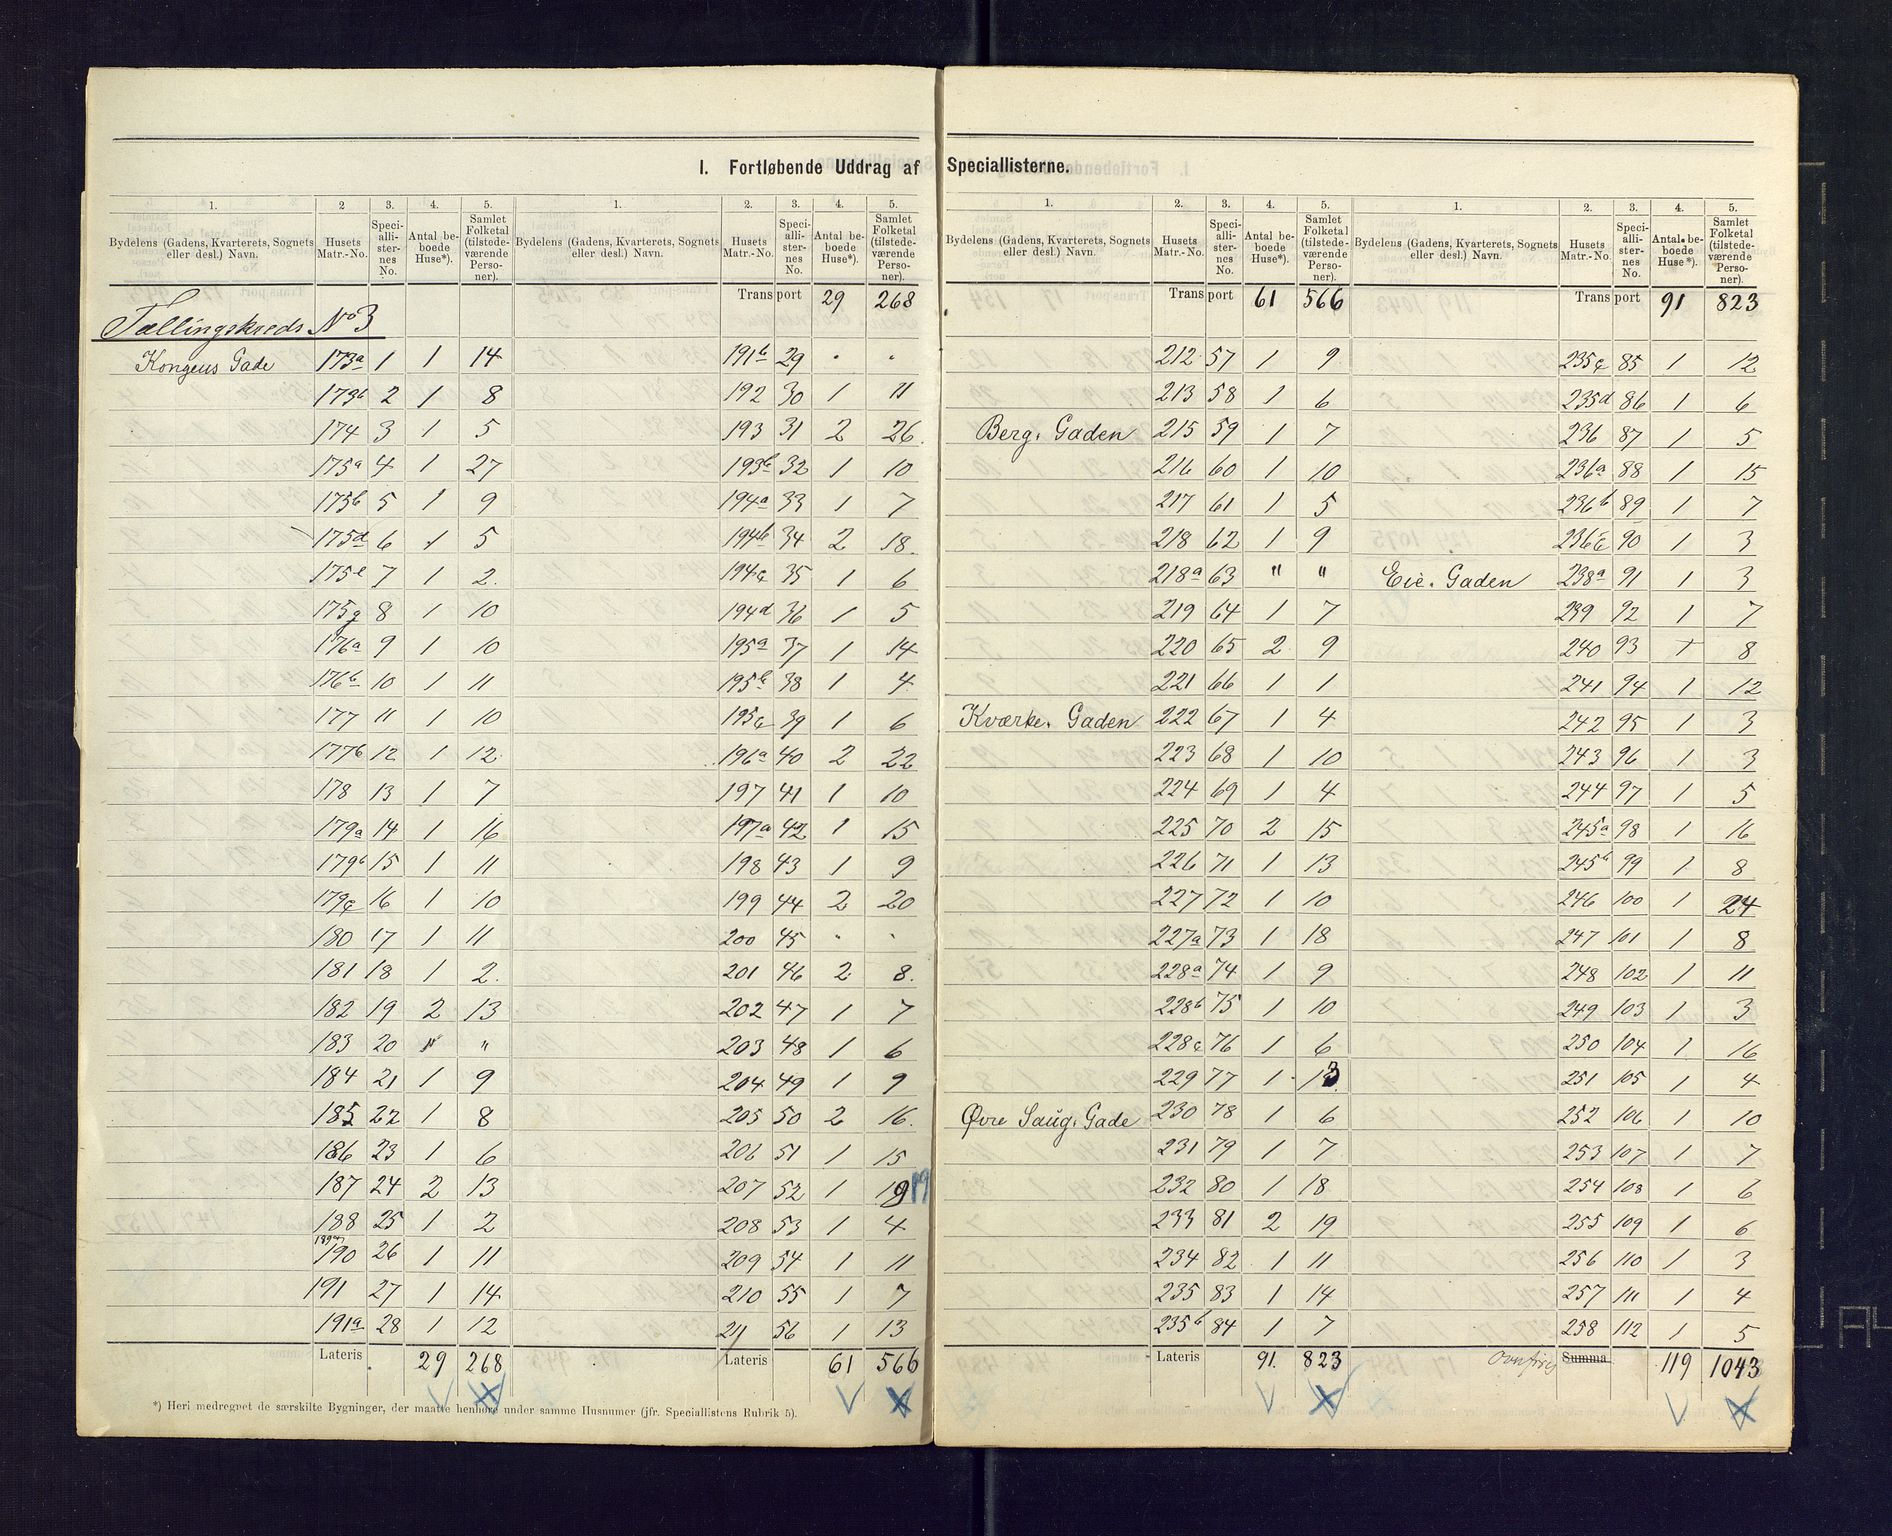 I. Fortløbende Uddrag af Speciallisterne.
1. 2 3. 4. 5. 1. 2. 3. 4. 5.
Bydelens (Gadens, Kvarterets, Sognets eller desl.) Navn. Husets Matr.-No. Speciallisternes No. Antal beboede Huse*). Samlet Folketal (tilstedeværende Personer). Bydelens (Gadens, Kvarterets, Sognets eller desl.) Navn. Husets Matr.-No. Speciallisternes No. Antal beboede Huse*). Samlet Folketal (tilstedeværende Personer).
Transport 29 268
Tællingskreds No 3
Kongens Gade 173a 1 1 14 191b 29 " "
173b 2 1 8 192 30 1 11
174 3 1 5 193 31 2 26
175a 4 1 27 193b 32 1 10
175b 5 1 9 194a 33 1 7
175d 6 1 5 194b 34 2 18
175e 7 1 2 194c 35 1 6
175g 8 1 10 194d 36 1 5
176a 9 1 10 195a 37 1 14
176b 10 1 11 195b 38 1 4
177 11 1 10 195c 39 1 6
177b 12 1 12 196a 40 2 22
178 13 1 7 197 41 1 10
179a 14 1 16 197a 42 1 15
179b 15 1 11 198 43 1 9
179c 16 1 10 199 44 2 20
180 17 1 11 200 45 " "
181 18 1 2 201 46 2 8
182 19 2 13 202 47 1 7
183 20 " " 203 48 1 6
184 21 1 9 204 49 1 9
185 22 1 8 205 50 2 16
186 23 1 6 206 51 1 15
187 24 2 13 207 52 1 19 19
188 25 1 2 208 53 1 4
190 26 1 11 209 54 1 11
191 27 1 14 210 55 1 7
191a 28 1 12 211 56 1 13
Lateris 29 268 Lateris 61 566
*) Heri medregnet de særskilte Bygninger, der maatte henhøre under samme Husnumer (jfr. Speciallistens Rubrik 5).
1. 2. 3. 4. 5. 1. 2. 3. 4. 5.
Bydelens (Gadens, Kvarterets, Sognets eller desl.) Navn. Husets Matr.-No. Speciallisternes No. Antal beboede Huse*). Samlet Folketal (tilstedeværende Personer). Bydelens (Gadens, Kvarterets, Sognets eller desl.) Navn. Husets Matr.-No. Speciallisternes No. Antal beboede Huse*). Samlet Folketal (tilstedeværende Personer).
Transport 61 566 Transport 91 823
212 57 1 9 235c 85 1 12
213 58 1 6 235d 86 1 6
Berg. Gaden 215 59 1 7 236 87 1 5
216 60 1 10 236a 88 1 15
217 61 1 5 236b 89 1 7
218 62 1 9 236c 90 1 3
218a 63 " " Eie. Gaden 238a 91 1 3
219 64 1 7 239 92 1 7
220 65 2 9 240 93 1 8
221 66 1 1 241 94 1 12
Kværke. Gaden 222 67 1 4 242 95 1 3
223 68 1 10 243 96 1 3
224 69 1 4 244 97 1 5
225 70 2 15 245a 98 1 16
226 71 1 13 245b 99 1 8
227 72 1 10 246 100 1 24
227a 73 1 18 247 101 1 8
228a 74 1 9 248 102 1 11
228b 75 1 10 249 103 1 3
228c 76 1 6 250 104 1 16
229 77 1 13 251 105 1 4
Øvre Saug. Gade 230 78 1 6 252 106 1 10
231 79 1 7 253 107 1 7
232 80 1 18 254 108 1 6
233 81 2 19 255 109 1 6
234 82 1 11 256 110 1 3
235 83 1 14 257 111 1 4
235b 84 1 7 258 112 1 5
Lateris 91 823 Summa 119 1043